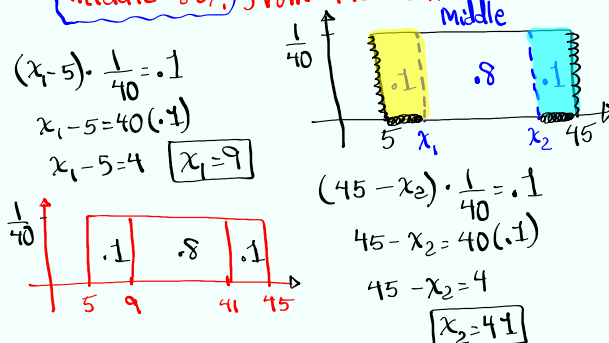 middle 80% from
Middle
1/40
.1 .8 .1
5 x₁ x₂ 45
(x₁-5)· 1/40 = .1
x₁-5=40(.1)
x₁-5=4 x₁=9
1/40
.1 .8 .1
5 9 41 45
(45-x₂)· 1/40 = .1
45-x₂=40(.1)
45-x₂=4
x₂=41